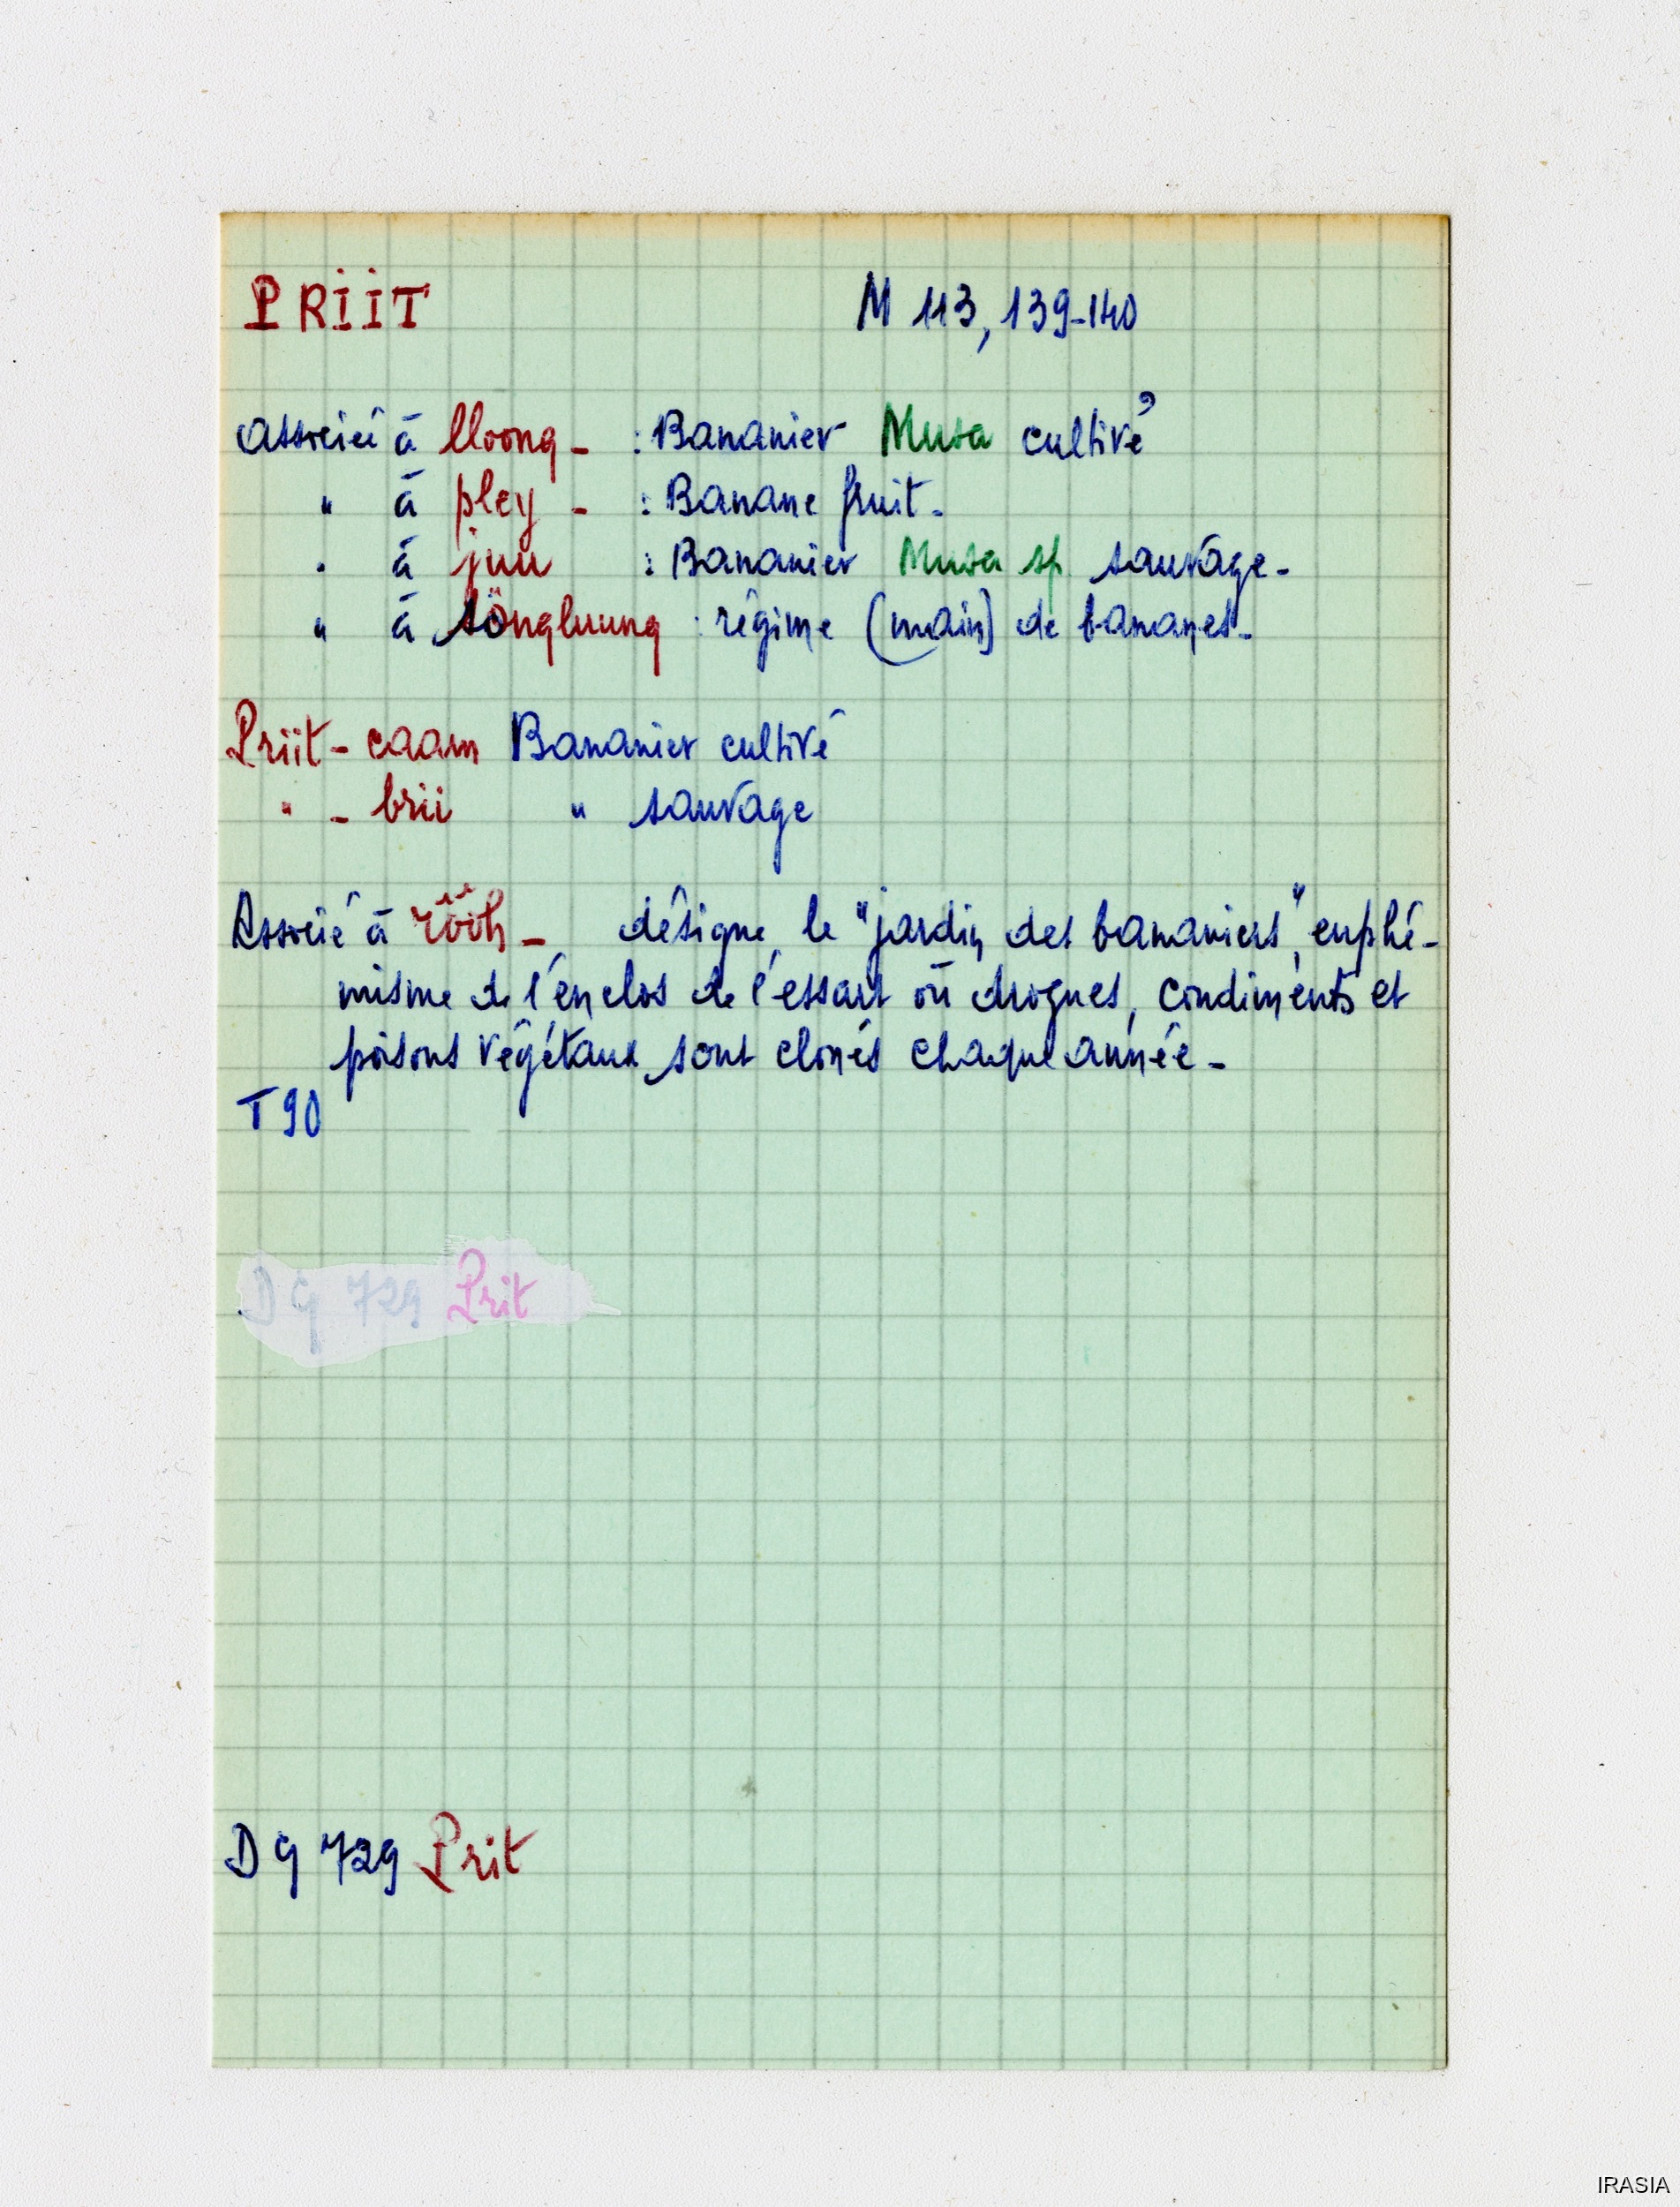 PRIIT M 113, 139-140
Associé à lloong - : Bananier Musa cultivé
" à pley - : Banane fruit -
" à juu : Bananier Musa sp. sauvage -
" à söngluung : régime (main) de bananes -
Priit - caam Bananier cultivé
" - brii " sauvage
Associé à rööh - désigne le "jardin des bananiers", euphé-
misme de l'enclos de l'essart où drogues, condiments et
poisons végétaux sont clonés chaque année -
T 90
DG 729 Prit
DG 729 Prit
IRASIA